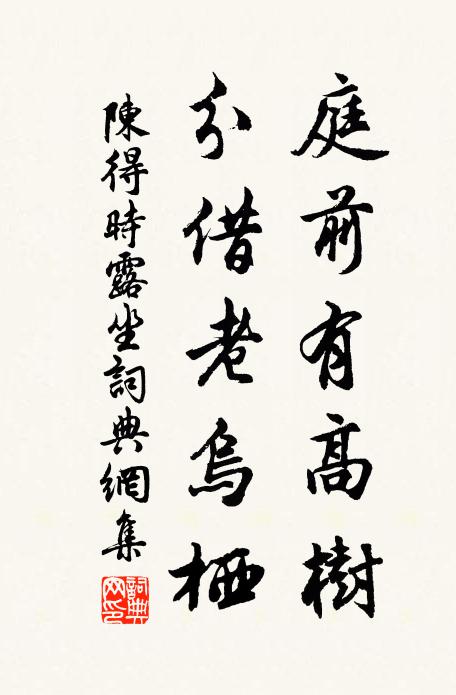 庭前有高樹
分借老烏栖
陳得時露坐詞典網集
詞典網印